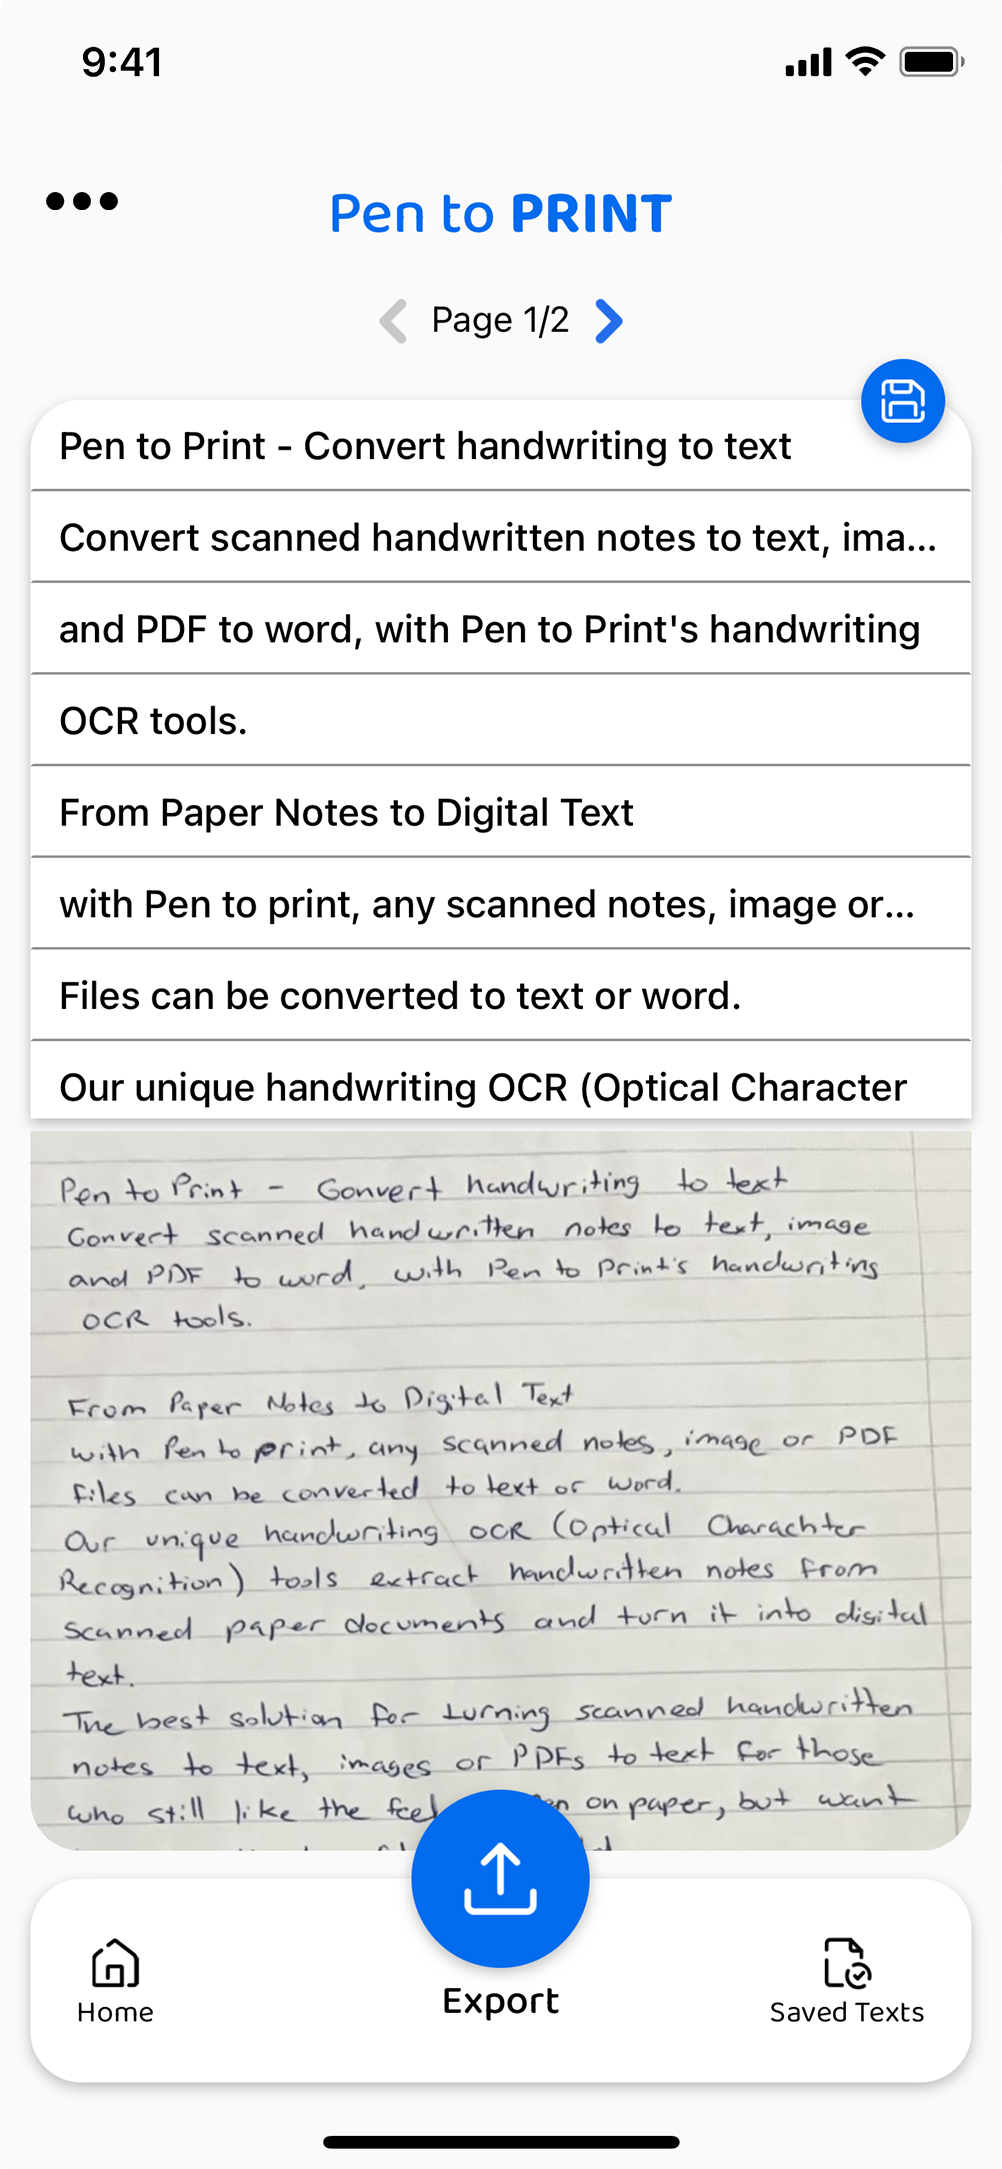 9:41
Pen to PRINT
Page 1/2
Pen to Print - Convert handwriting to text
Convert scanned handwritten notes to text, ima...
and PDF to word, with Pen to Print's handwriting
OCR tools.
From Paper Notes to Digital Text
with Pen to print, any scanned notes, image or...
Files can be converted to text or word.
Our unique handwriting OCR (Optical Character
Pen to Print - Convert handwriting to text
Convert scanned handwritten notes to text, image
and PDF to word, with Pen to Print's handwriting
OCR tools.
From Paper Notes to Digital Text
with Pen to print, any scanned notes, image or PDF
files can be converted to text or word.
Our unique handwriting OCR (Optical Charachter
Recognition) tools extract handwritten notes from
scanned paper documents and turn it into digital
text.
The best solution for turning scanned handwritten
notes to text, images or PDFs to text for those
who still like the feel on paper, but want
Export
Home
Saved Texts